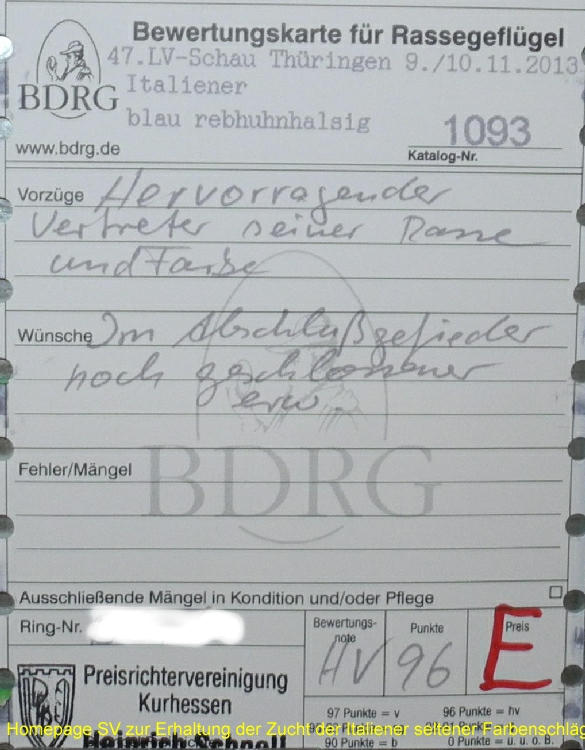 Bewertungskarte für Rassegeflügel
47.LV-Schau Thüringen 9./10.11.2013
Italiener
BDRG
blau rebhuhnhalsig
1093
www.bdrg.de
Katalog-Nr.
Vorzüge Hervorragender
Vertreter seiner Rasse
und Farbe
Wünsche Im Abschlußgefieder
noch geschlossener
erw.
BDRG
Fehler/Mängel
Ausschließende Mängel in Kondition und/oder Pflege
Ring-Nr.
Bewertungs-
note
Punkte
Preis
HV
96
E
Preisrichtervereinigung
Kurhessen
97 Punkte = v
96 Punkte = hv
Homepage SV zur Erhaltung der Zucht der Italiener seltener Farbenschlä
Heinrich Schnell
90 Punkte = b